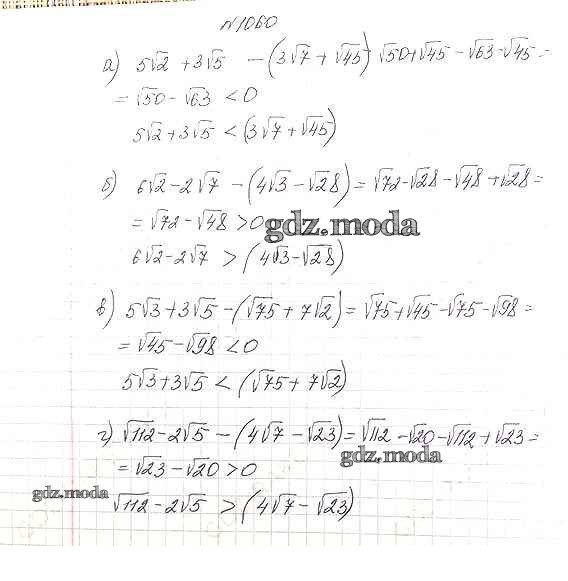 №1060
а) 5√2 + 3√5 - (3√7 + √45) √50+√45 - √63 - √45 =
= √50 - √63 < 0
5√2 + 3√5 < (3√7 + √45)
б) 6√2 - 2√7 - (4√3 - √28) = √72 - √28 - √48 + √28 =
= √72 - √48 > 0
gdz.moda
6√2 - 2√7 > (4√3 - √28)
в) 5√3 + 3√5 - (√75 + 7√2) = √75 + √45 - √75 - √98 =
= √45 - √98 < 0
5√3 + 3√5 < (√75 + 7√2)
г) √112 - 2√5 - (4√7 - √23) = √112 - √20 - √112 + √23 =
gdz.moda
= √23 - √20 > 0
gdz.moda
√112 - 2√5 > (4√7 - √23)